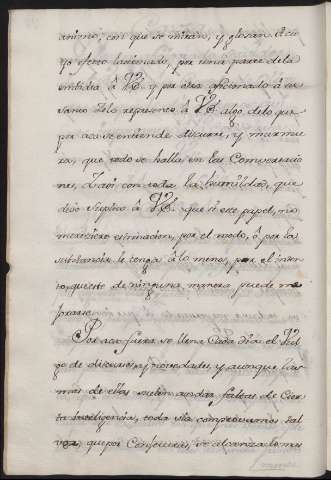 animo, con que se miran, y glosan. A cu
yo efecto lastimado, por una parte de la
embidia à VE. y por otra aficionado à su
santo zelo represento à VE. algo de lo que
por aca se entiende discurre, y murmu
ra, que todo se halla en las Comversacio
nes, con toda la humildad, que
devo suplico à VE. que si este papel, no
mereciere estimacion, por el modo, ò por la
substancia le tenga à lo menos, por el inten
to, que este de ninguna manera puede me
jorarse.
Por aca fuera se llena cada dia el Vul
go de discursos, y novedades, y aunque las
mas de ellas suelen andar faltas de Cier
ta inteligencia, toda via comprovamos tal
vez, que por Conjeturas, se alcanza lo mas